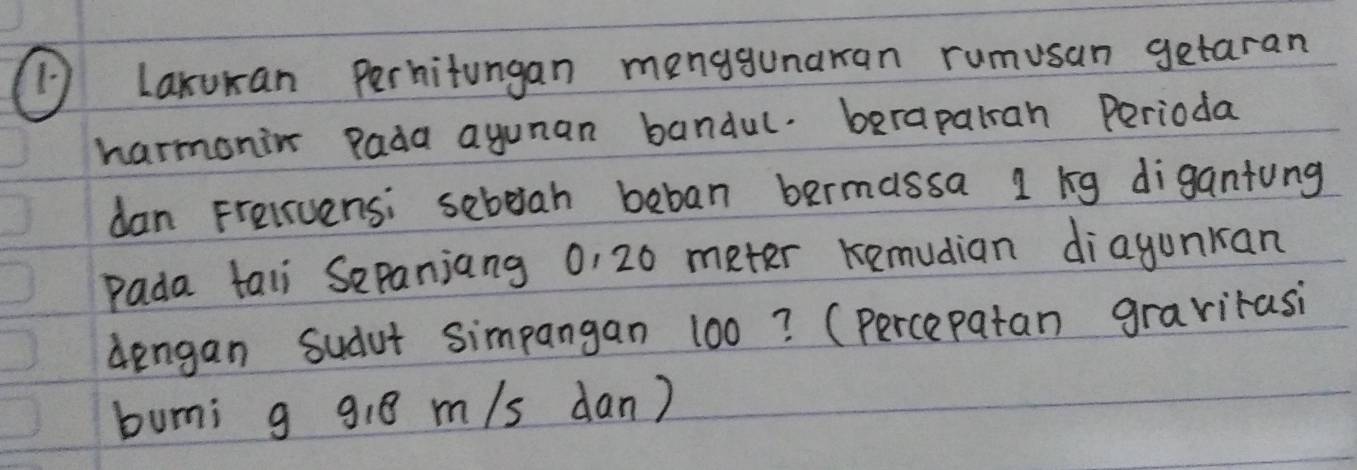 1. Lakukan Perhitungan menggunakan rumusan getaran
harmonik Pada ayunan bandul. berapakah Perioda
dan Frekuensi sebuah beban bermassa 1 kg digantung
Pada tali Sepanjang 0,20 meter kemudian diayunkan
dengan Sudut Simpangan 100 ? (Percepatan gravitasi
bumi g 9,8 m/s dan)